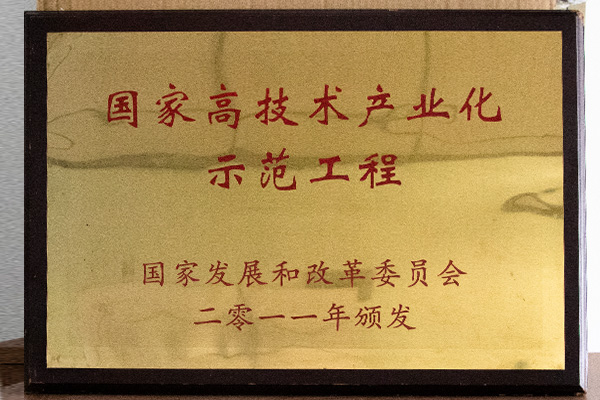 国家高技术产业化
示范工程
国家发展和改革委员会
二零一一年颁发